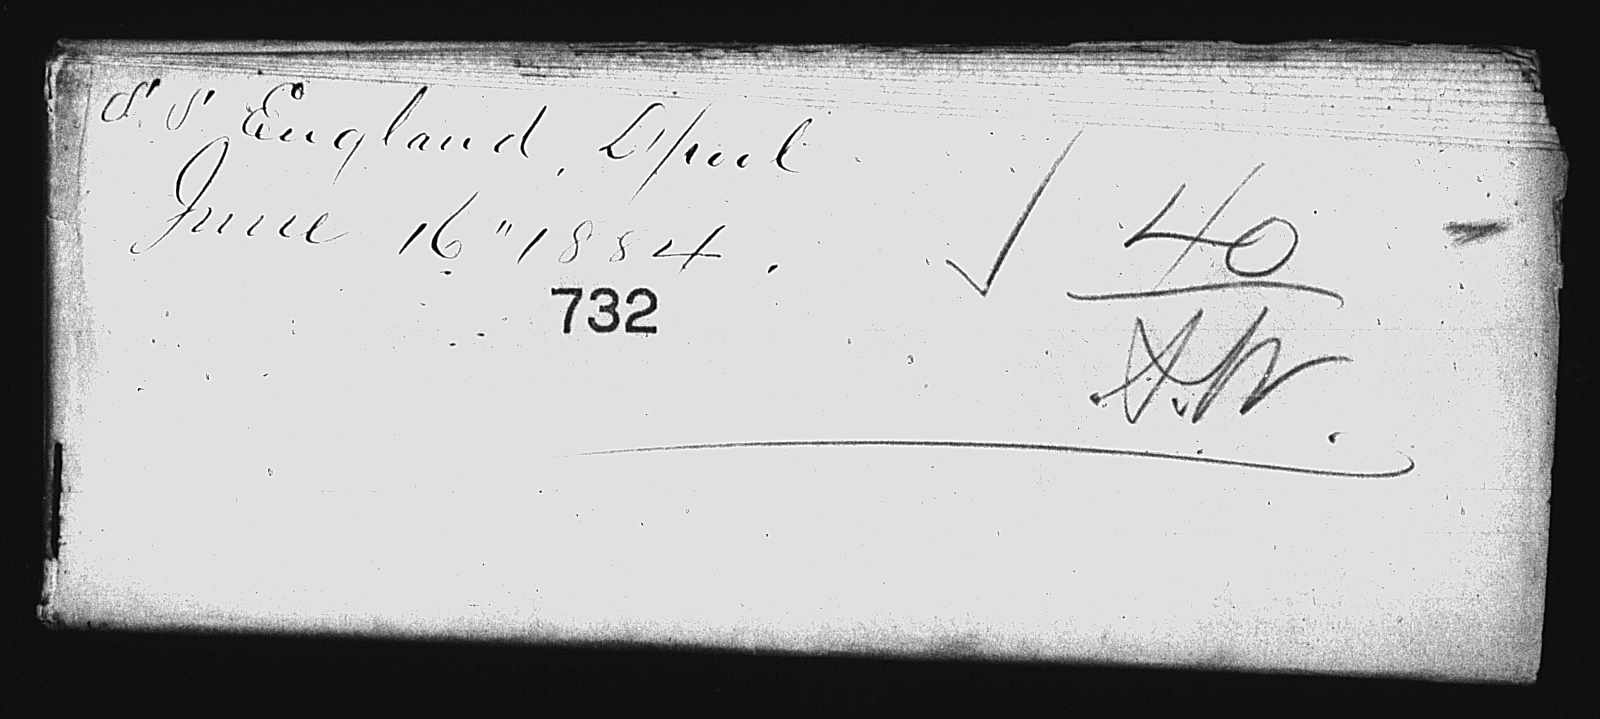 S.S. England, L'pool
June 16" 1884.
732
40